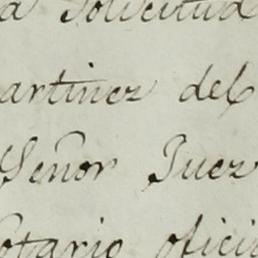 a Solicitud
artinez del
Señor Juez
otario ofici